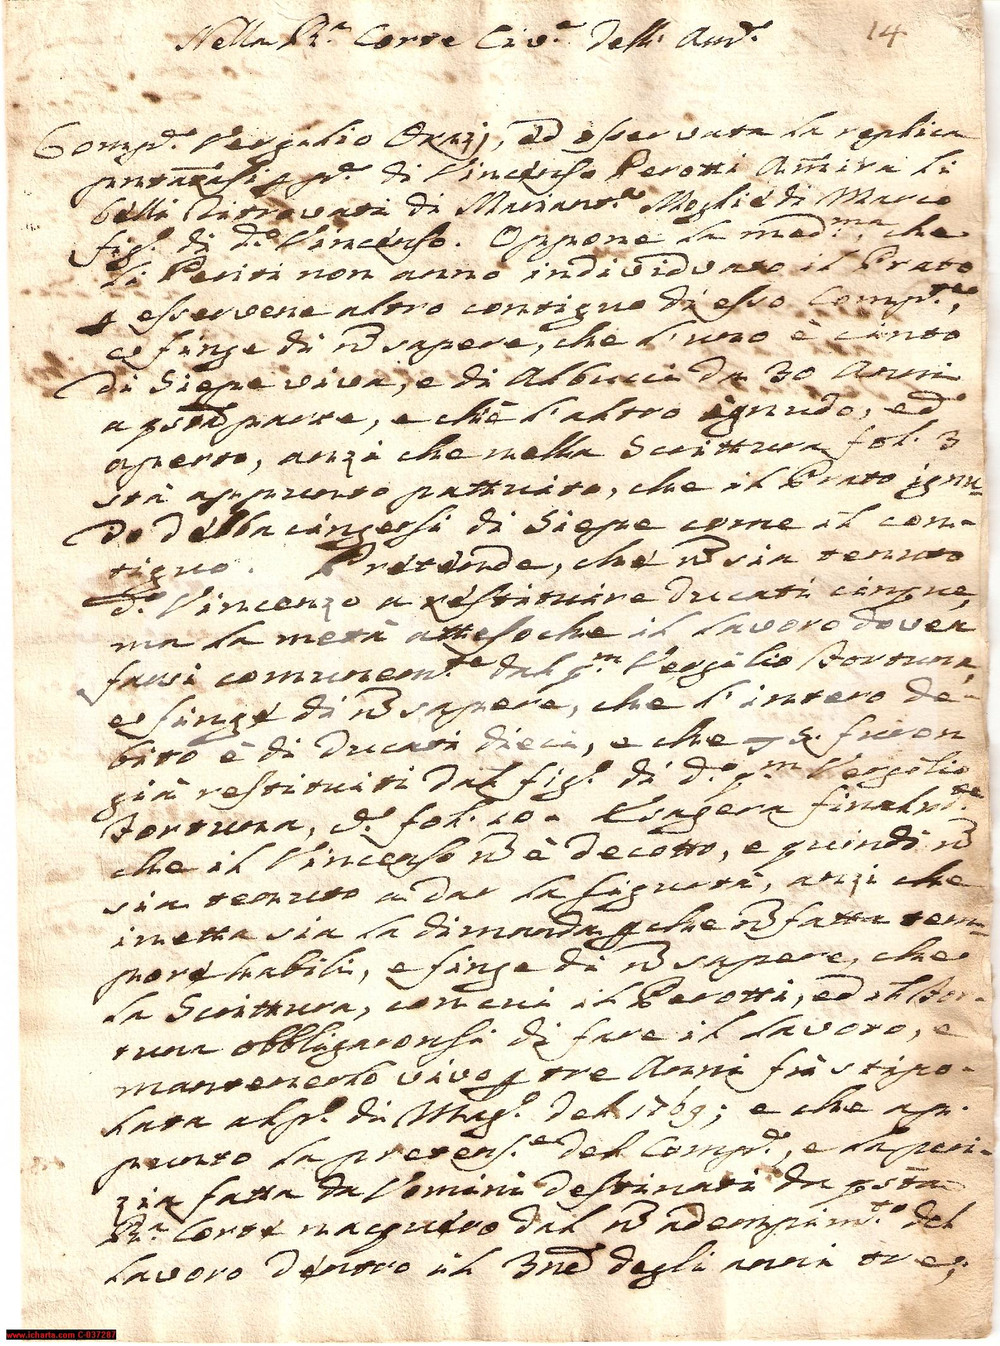 Nella R.ª Corte Civ.ᵉ dell' And.ᵉ 14
Comp.ᵉ Vergilio Orazj, ed osservata la replica
di Vincenso Perotti
di Moglie di Marco
fig.º di d.º Vincenso. Oppone la med.ᵐᵃ che
li Periti non anno individuato il Prato
esservene altro contiguo di esso Comp.ᵗᵉ,
e finge di ñ sapere, che l'uno è cinto
di Siepe viva, e di Albucci da 30 Anni
a parte, e che l'altro ignudo, ed
aperto, anzi che nella Scrittura fol. 3
stà appunto pattuito, che il Prato ignu-
do debba cingersi di Siepe come il con-
tiguo. Pretende, che ñ sia tenuto
d.º Vincenzo a restituire Ducati cinque,
ma la metà attesoche il lavoro dovea
farsi comunem.ᵗᵉ dal q.ᵐ Vergilio Fortuna,
e finge di ñ sapere, che l'intero de-
bito è di Ducati dieci, e che 5. furon
già restituiti dal fig.º di d.º q.ᵐ Vergilio
Fortuna, d.º fol. 10. Esagera finalm.ᵗᵉ
che il Vincenso ñ è decotto, e quindi ñ
sia tenuto a dar la sigurtà, anzi che
inetta sia la dimanda che ñ fatta tem-
pore habili, e finge di ñ sapere, che
la Scrittura, con cui il Perotti, ed il For-
tuna obbligaronsi di fare il lavoro, e
mantenerlo vivo tre Anni fù stipo-
lata al p.º di Mag.º del 1769; e che ap-
punto la pretens.ᵉ del Comp.ᵉ, e la peri-
zia fatta da Uomini destinati da
R.ª Corte nacquero dal ñ adempim.ᵗᵒ del
lavoro dentro il degli anni tre,
www.icharta.com C-037287